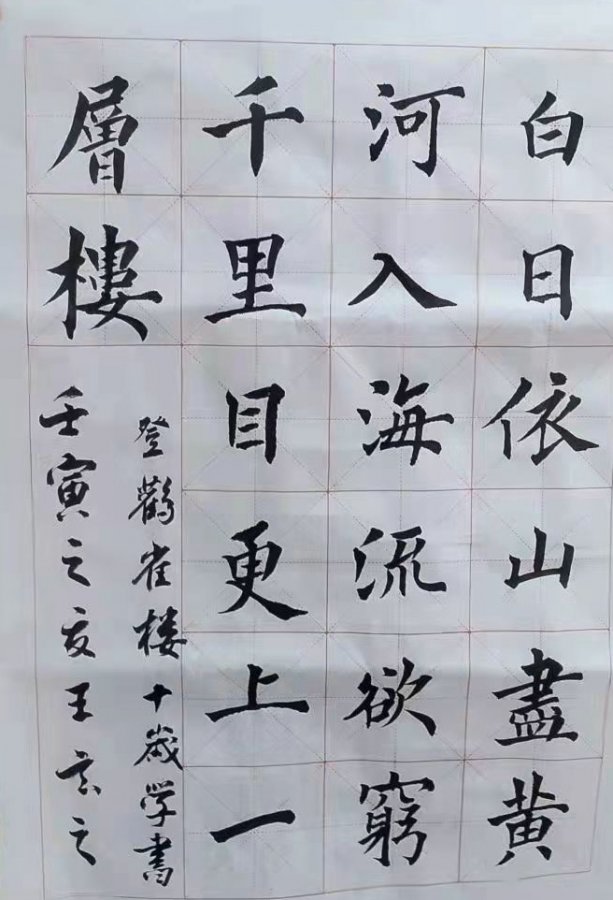 白日依山盡黄
河入海流欲窮
千里目更上一
層樓
登鸛雀楼十歲学書
壬寅之夏王之